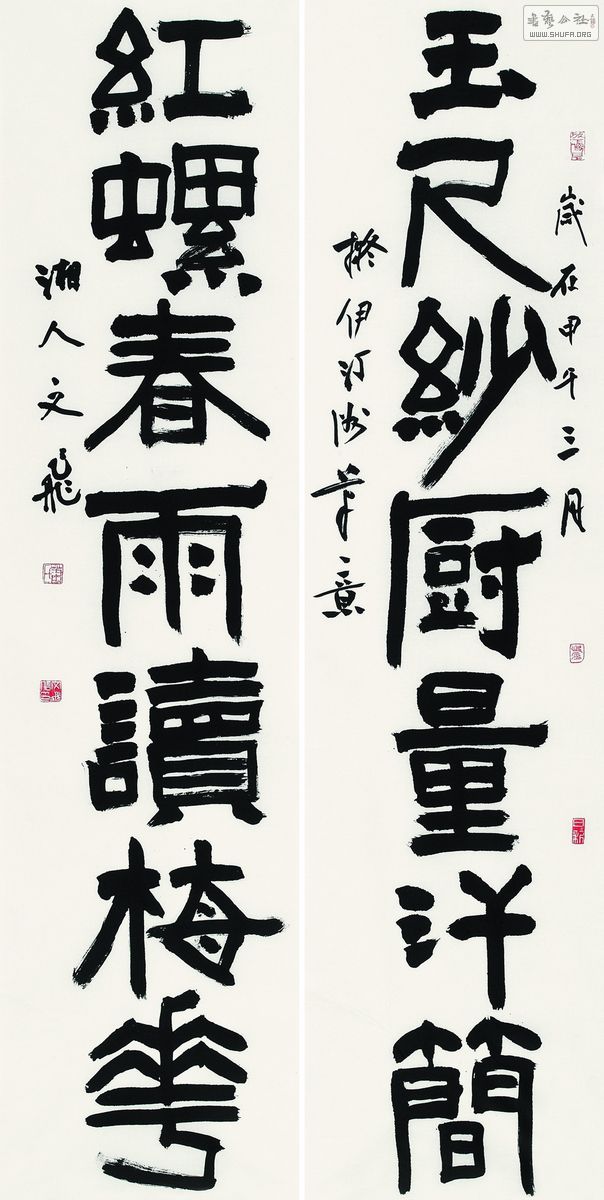 書藝公社
WWW.SHUFA.ORG
歲在甲午三月
玉尺紗厨量汗簡
擬伊汀洲筆意
紅螺春雨讀梅花
湘人文飛
日新